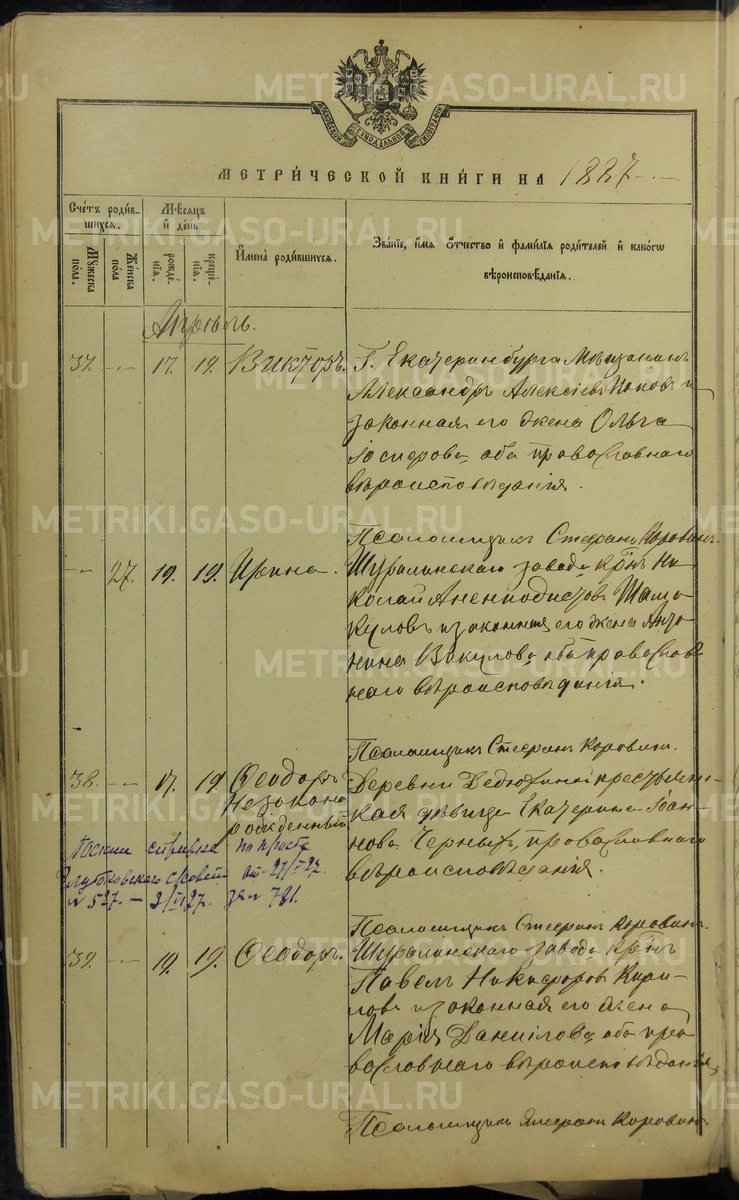 МОСКОВСКОЙ СѴНОДАЛЬНОЙ ТИПОГРАФІИ
МЕТРИ́ЧЕСКОЙ КНИ́ГИ НА 1887
Сче́тъ роди́в-
шихся.
Му́жеска
по́ла.
Же́нска
по́ла
Мѣ́сяцъ
и҆ де́нь
рожде́-
нїя.
креще́-
нїя.
И҆мена̀ роди́вшихся.
Зва́нїе, и҆́мя ѻ҆́тчество и҆ фами́лїя роди́телей и҆ како́гѡ
вѣроисповѣ́данїя.
Апрѣль.
37. -- 17. 19. Викторъ.
Г. Екатеринбурга мѣщанинъ
Александръ Алексіевъ Поповъ и
законная его жена Ольга
Іосифова, оба православнаго
вѣроисповѣданія.
Псаломщикъ Стефанъ Коровинъ.
-- 27. 19. 19. Ирина.
Шуралинскаго завода крнъ Ни-
колай Анемподистовъ
и законная его жена Анто-
нина Викулова, оба православ
наго вѣроисповѣданія.
Псаломщикъ Стефанъ Коровинъ.
38. -- 17. 19. Ѳеодоръ
незаконно
рожденный
Деревни крестьянс-
кая дѣвица Екатерина Іоан-
нова Черныхъ, православнаго
вѣроисповѣданія.
справка по просьб
с/совета от 27/V 27.
№ 527. — 2/VI 27. за № 781.
Псаломщикъ Стефанъ Коровинъ.
39. -- 19. 19. Ѳеодоръ.
Шуралинскаго завода крнъ
Павелъ Никифоровъ Кири-
ловъ и законная его жена
Марія Даниілова, оба пра-
вославнаго вѣроисповѣданія,
Псаломщикъ Стефанъ Коровинъ
METRIKI.GASO-URAL.RU